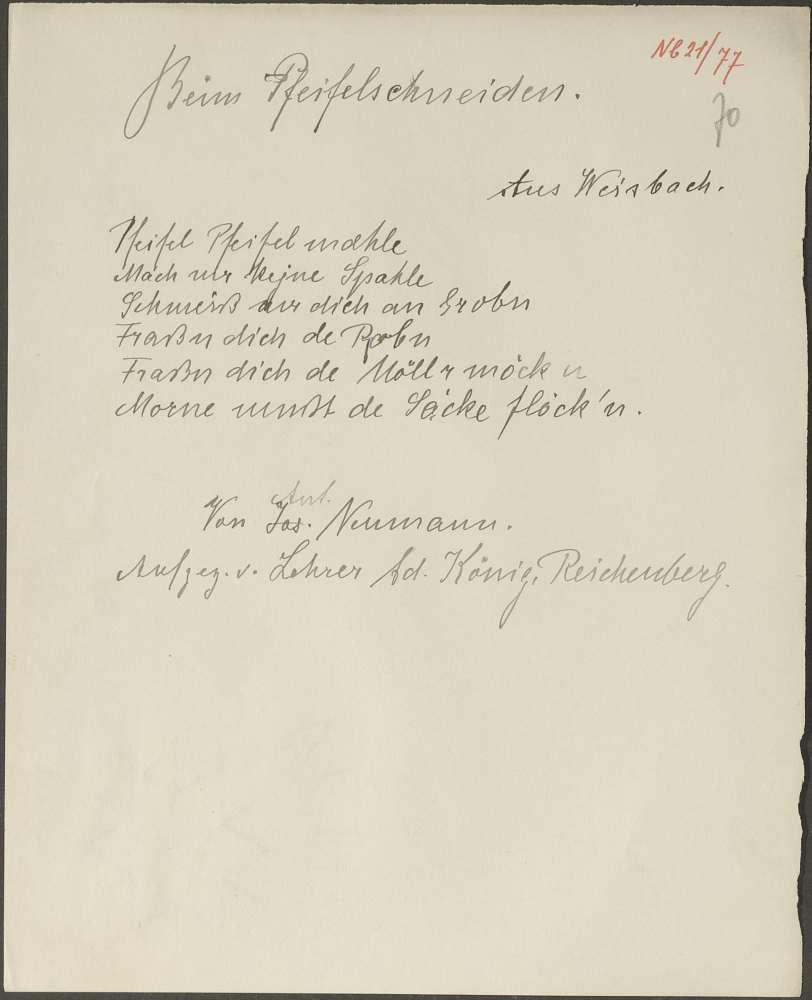 NB 21/77
70
Beim Pfeifelschneiden.
Aus Weisbach.
Pfeifel Pfeifel mahle
Mach mr kejne Spahle
Schmeiß mr dich an Grobn
Fraßn dich de Robn
Fraßn dich de Möllr möck'n
Morne mußt de Säcke flöck'n.
Ant.
Von Jos. Neumann.
Aufgez. v. Lehrer Ad. König, Reichenberg.